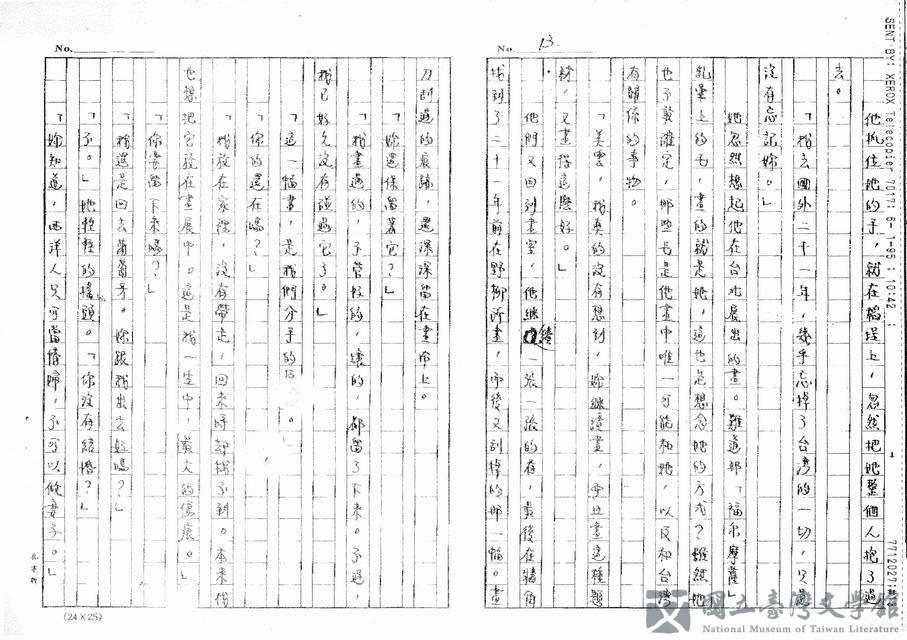 SENT BY: XEROX Telecopier 7017; 6- 1-95 ; 10:42 ;
7712021;#
No. 13
他抓住她的手,就在稻埕上,忽然把她整個人抱了過
去。
「我去國外二十一年,幾乎忘掉了台灣的一切,只是
沒有忘記妳。」
她忽然想起他在台北展出的畫。難道那「福尔摩薩」
乳暈上的毛,畫的就是她,這也是想念她的方式?雖然她
也不敢確定,那些毛是他畫中唯一可能和她,以及和台灣
有關係的事物。
「美雲,我真的沒有想到,妳繼續畫,而且畫這種題
材,又畫得這麼好。」
他們又回到畫室,他繼續一張一張的看,最後在牆角
找到了二十一年前在野柳所畫,而後又刮掉的那一幅。畫
No.
刀刮過的痕跡,還深深留在畫布上。
「妳還保留著它?」
「我畫過的,不管好的,壞的,都留了下來。不過,
我已好久沒有碰過它了。」
「這一幅畫,是我們分手的 。」
「你的還在嗎?」
「我放在家裡,沒有帶走,回來時卻找不到。本來我
也想把它放在畫展中。這是我一生中,最大的傷痕。」
「你要留下來嗎?」
「我還是回去葡萄牙。妳跟我出去好嗎?」
「不。」她輕輕的搖頭。「你沒有結婚?」
「妳知道,西洋人只可當情婦,不可以做妻子。」
(24×25)
國立臺灣文學館
National Museum of Taiwan Literature